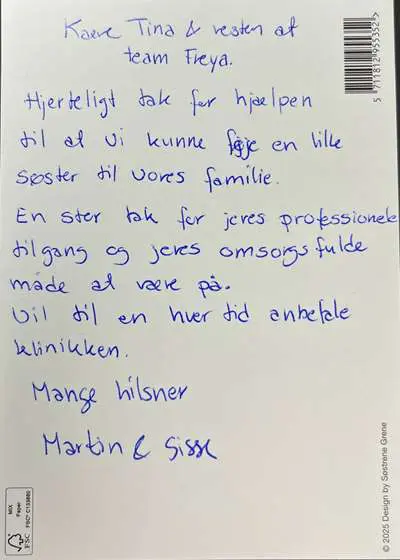 Kære Tina & resten af
team Freya.
Hjerteligt tak for hjælpen
til at vi kunne føje en lille
søster til vores familie.
En stor tak for jeres professionele
tilgang og jeres omsorgsfulde
måde at være på.
Vil til en hver tid anbefale
klinikken.
Mange hilsner
Martin & Sisse
5 711812 955352 >
© 2025 Design by Søstrene Grene
MIX
Paper
FSC
FSC® C133880